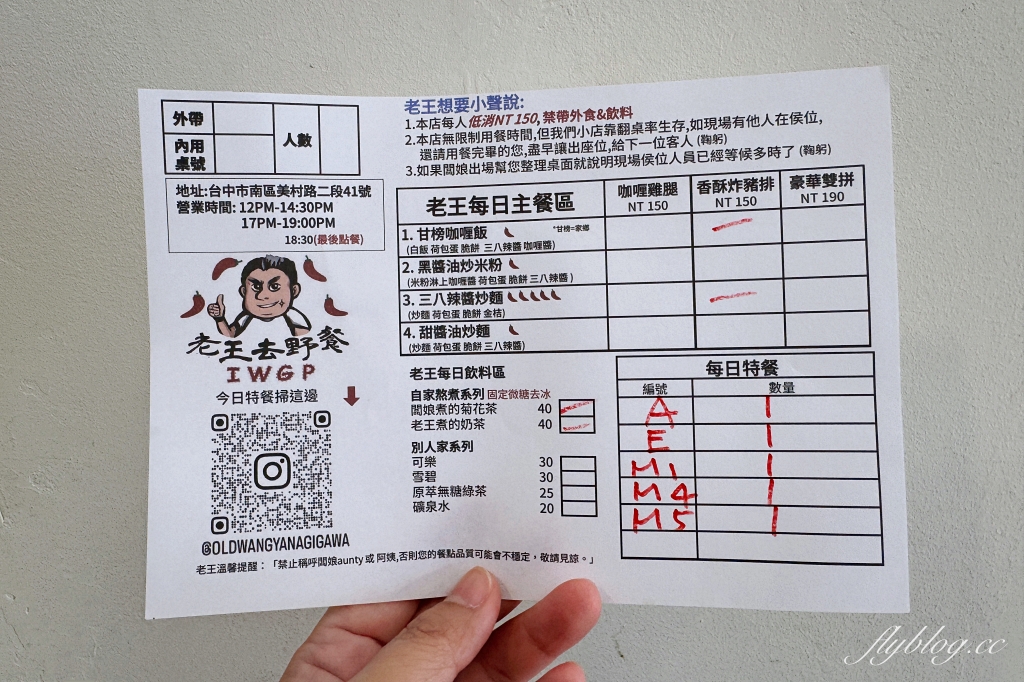 外帶
內用
桌號
人數
地址:台中市南區美村路二段41號
營業時間: 12PM-14:30PM
17PM-19:00PM
18:30(最後點餐)
老王去野餐
IWGP
今日特餐掃這邊
@OLDWANGYANAGIGAWA
老王想要小聲說:
1.本店每人低消NT 150,禁帶外食&飲料
2.本店無限制用餐時間,但我們小店靠翻桌率生存,如現場有他人在侯位,
還請用餐完畢的您,盡早讓出座位,給下一位客人 (鞠躬)
3.如果闆娘出場幫您整理桌面就說明現場侯位人員已經等候多時了 (鞠躬)
老王每日主餐區
咖喱雞腿
NT 150
香酥炸豬排
NT 150
豪華雙拼
NT 190
1. 甘榜咖喱飯 *甘榜=家鄉
(白飯 荷包蛋 脆餅 三八辣醬 咖喱醬)
2. 黑醬油炒米粉
(米粉淋上咖喱醬 荷包蛋 脆餅 三八辣醬 )
3. 三八辣醬炒麵
(炒麵 荷包蛋 脆餅 金桔)
4. 甜醬油炒麵
(炒麵 荷包蛋 脆餅 三八辣醬)
老王每日飲料區
自家熬煮系列 固定微糖去冰
闆娘煮的菊花茶 40
老王煮的奶茶 40
別人家系列
可樂 30
雪碧 30
原萃無糖綠茶 25
礦泉水 20
每日特餐
編號 數量
A 1
E 1
M1 1
M4 1
M5 1
老王溫馨提醒：「禁止稱呼闆娘aunty 或 阿姨,否則您的餐點品質可能會不穩定，敬請見諒。」
flyblog.cc